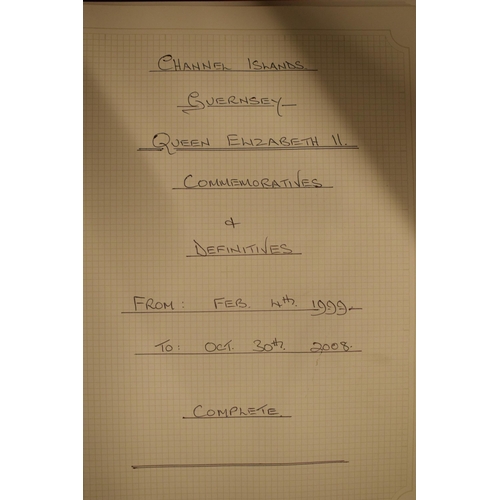 CHANNEL ISLANDS
GUERNSEY
QUEEN ELIZABETH II.
COMMEMORATIVES
&
DEFINITIVES
FROM: FEB. 4th. 1999
TO: OCT. 30th. 2008.
COMPLETE.